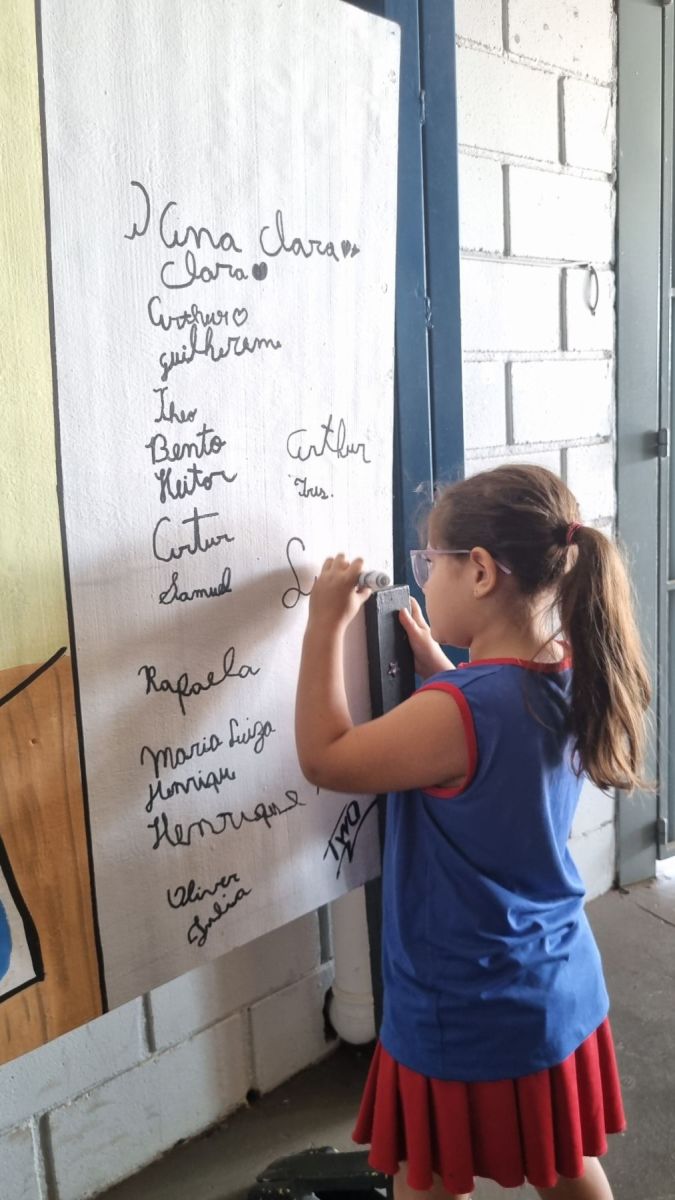 Ana Clara
Clara
Arthur
guilherem
Theo
Bento
Heitor
Arthur
Artur
Samuel
Rafaela
Maria Luiza
Henriqu
Henrique
Oliver
Julia